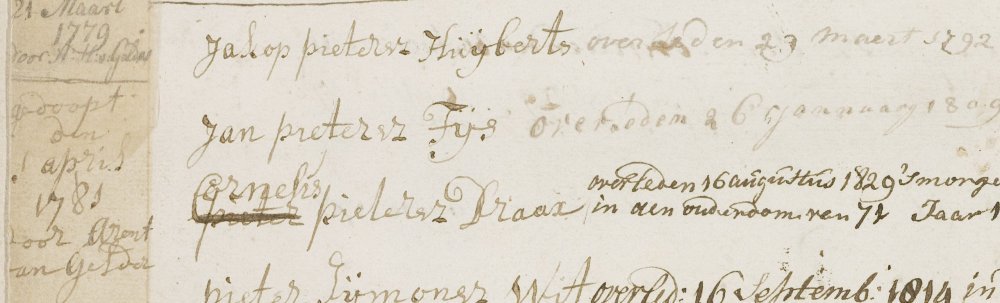 21 Maart
1779
door H. H. v Gelder
gedoopt
den
april
1781
door Arent
van Gelder
Jakop pietersz Huijberts overleden 23 maert 1792
Jan pietersz Tijs overleden 26 Jannuarij 1809
Cornelis
pieter pietersz Draax overleden 16 augustus 1829 's morge
in den ouderdom van 71 Jaar 1
pieter Sijmonsz Wit overlid: 16 Septemb: 1814 in